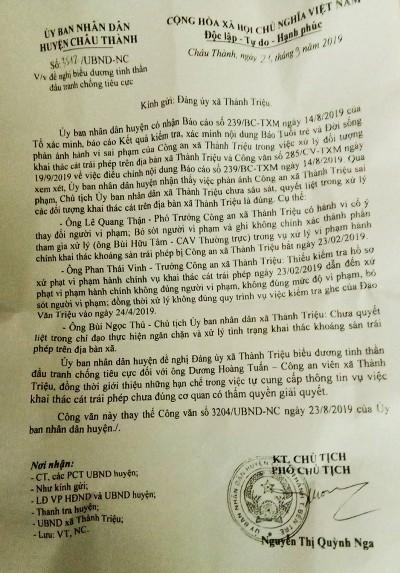 ỦY BAN NHÂN DÂN
HUYỆN CHÂU THÀNH
CỘNG HÒA XÃ HỘI CHỦ NGHĨA VIỆT NAM
Độc lập - Tự do - Hạnh phúc
Số: /UBND-NC
V/v đề nghị biểu dương tinh thần
đấu tranh chống tiêu cực
Châu Thành, ngày tháng 9 năm 2019
Kính gửi: Đảng ủy xã Thành Triệu.
Ủy ban nhân dân huyện có nhận Báo cáo số 239/BC-TXM ngày 14/8/2019 của
Tổ xác minh, báo cáo Kết quả kiểm tra, xác minh nội dung Báo Tuổi trẻ và Đời sống
phản ánh hành vi sai phạm của Công an xã Thành Triệu trong việc xử lý đối tượng
khai thác cát trái phép trên địa bàn xã Thành Triệu và Công văn số 285/CV-TXM ngày
19/9/2019 về việc điều chỉnh nội dung Báo cáo số 239/BC-TXM ngày 14/8/2019. Qua
xem xét, Ủy ban nhân dân huyện nhận thấy việc phản ánh Công an xã Thành Triệu sai
phạm, Chủ tịch Ủy ban nhân dân xã Thành Triệu chưa sâu sát, quyết liệt trong xử lý
các đối tượng khai thác cát trên địa bàn xã Thành Triệu là đúng. Cụ thể:
- Ông Lê Quang Thận - Phó Trưởng Công an xã Thành Triệu có hành vi cố ý
thay đổi người vi phạm; Bỏ sót người vi phạm và ghi không chính xác thành phần
tham gia xử lý (ông Bùi Hữu Tâm - CAV Thường trực) trong vụ xử lý vi phạm hành
chính khai thác khoáng sản trái phép bị Công an xã Thành Triệu bắt ngày 23/02/2019.
- Ông Phan Thái Vinh - Trưởng Công an xã Thành Triệu: Thiếu kiểm tra hồ sơ
xử phạt vi phạm hành chính vụ khai thác cát trái phép ngày 23/02/2019 dẫn đến xử
phạt vi phạm hành chính không đúng người vi phạm, không đúng mức độ vi phạm, bỏ
sót người vi phạm; đồng thời xử lý không đúng quy trình vụ việc kiểm tra ghe của Đào
Văn Triệu vào ngày 24/4/2019.
- Ông Bùi Ngọc Thủ - Chủ tịch Ủy ban nhân dân xã Thành Triệu: Chưa quyết
liệt trong chỉ đạo thực hiện ngăn chặn và xử lý tình trạng khai thác khoáng sản trái
phép trên địa bàn xã.
Ủy ban nhân dân huyện đề nghị Đảng ủy xã Thành Triệu biểu dương tinh thần
đấu tranh chống tiêu cực đối với ông Dương Hoàng Tuấn – Công an viên xã Thành
Triệu, đồng thời giới thiệu những hạn chế trong việc tự cung cấp thông tin vụ việc
khai thác cát trái phép chưa đúng cơ quan có thẩm quyền giải quyết.
Công văn này thay thế Công văn số 3204/UBND-NC ngày 23/8/2019 của Ủy
ban nhân dân huyện./.
Nơi nhận:
- CT, các PCT UBND huyện;
- Như kính gửi;
- LĐ VP HĐND và UBND huyện;
- Thanh tra huyện;
- UBND xã Thành Triệu;
- Lưu: VT, NC.
KT. CHỦ TỊCH
PHÓ CHỦ TỊCH
Nguyễn Thị Quỳnh Nga